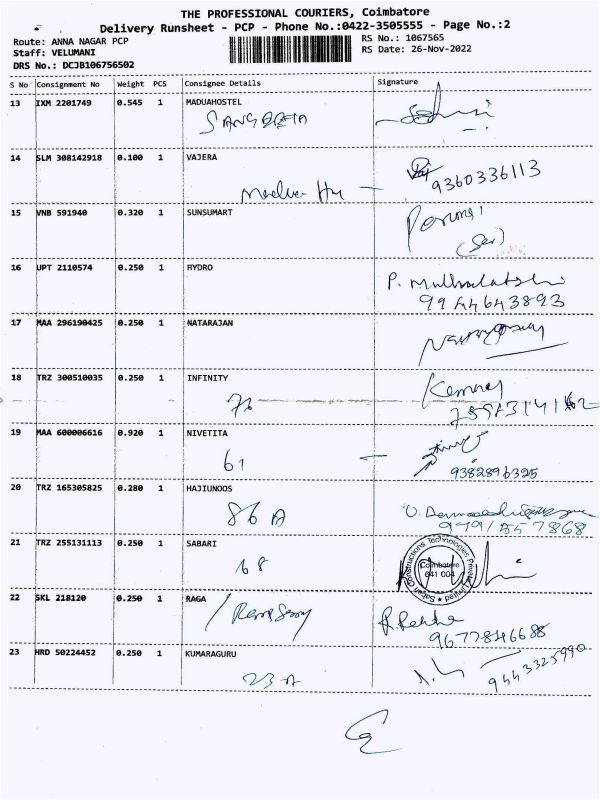 THE PROFESSIONAL COURIERS, Coimbatore
Delivery Runsheet - PCP - Phone No.:0422-3505555 - Page No.:2
Route: ANNA NAGAR PCP
RS No.: 1067565
Staff: VELUMANI
RS Date: 26-Nov-2022
DRS No.: DCJB106756502
S No Consignment No Weight PCS Consignee Details Signature
13 IXM 2201749 0.545 1 MADUAHOSTEL
14 SLM 308142918 0.100 1 VAJERA
9360336113
15 VNB 591940 0.320 1 SUNSUMART
16 UPT 2110574 0.250 1 HYDRO
9944643893
17 MAA 296190425 0.250 1 NATARAJAN
18 TRZ 300510035 0.250 1 INFINITY
19 MAA 600006616 0.920 1 NIVETITA
61
9382896325
20 TRZ 165305825 0.280 1 HAJIUNOOS
86 A
21 TRZ 255131113 0.250 1 SABARI
68
Sabari Constructions Technologies Private Limited
Coimbatore
641 004
22 SKL 218120 0.250 1 RAGA
9677846688
23 HRD 50224452 0.250 1 KUMARAGURU
23 A
9443325990